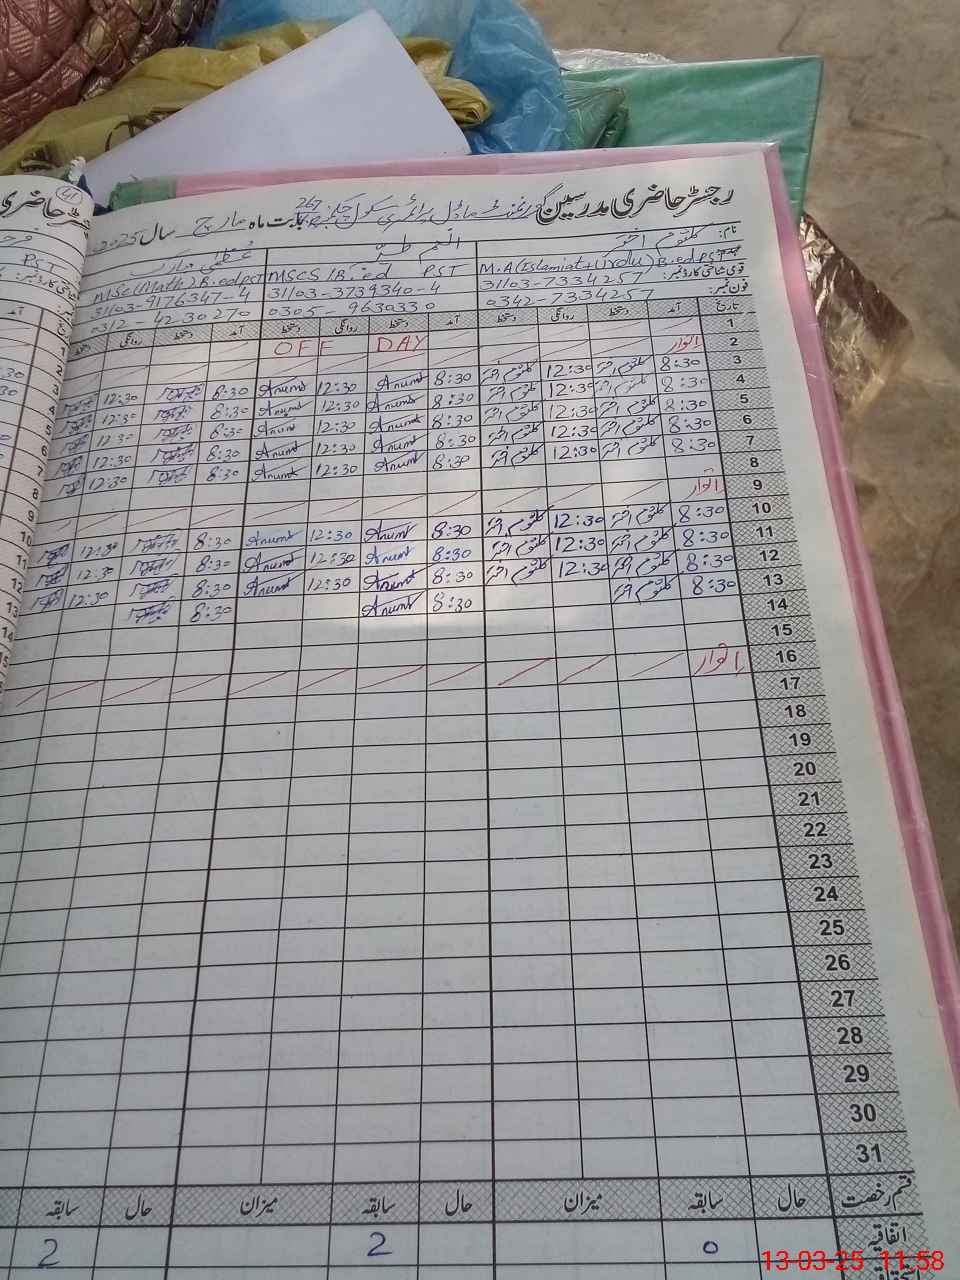 رجسٹر حاضری مدرسین گورنمنٹ ماڈل پرائمری سکول 267 بابت ماہ مارچ سال 2025
نام: کلثوم اختر
M.A(Islamiat+Urdu) B.ed PST
MSCS/B.ed PST
MSc(Math) B.ed PST
قومی شناختی کارڈ نمبر: 31103-7334257
31103-3739340-4
31103-9176347-4
فون نمبر: 0342-7334257
0305-9630330
0312-4230270
تاریخ آمد دستخط روانگی دستخط آمد دستخط روانگی دستخط آمد دستخط روانگی دستخط
1 OFF DAY
2 اتوار
3 8:30 کلثوم اختر 12:30 کلثوم اختر 8:30 Anum 12:30 Anum 8:30 12:30
4 8:30 کلثوم اختر 12:30 کلثوم اختر 8:30 Anum 12:30 Anum 8:30 12:30
5 8:30 کلثوم اختر 12:30 کلثوم اختر 8:30 Anum 12:30 Anum 8:30 12:30
6 8:30 کلثوم اختر 12:30 کلثوم اختر 8:30 Anum 12:30 Anum 8:30 12:30
7 8:30 کلثوم اختر 12:30 کلثوم اختر 8:30 Anum 12:30 Anum 8:30 12:30
8
9 اتوار
10 8:30 کلثوم اختر 12:30 کلثوم اختر 8:30 Anum 12:30 Anum 8:30 12:30
11 8:30 کلثوم اختر 12:30 کلثوم اختر 8:30 Anum 12:30 Anum 8:30 12:30
12 8:30 کلثوم اختر 12:30 کلثوم اختر 8:30 Anum 12:30 Anum 8:30 12:30
13 8:30 کلثوم اختر 8:30 Anum 8:30
14
15
16 اتوار
17
18
19
20
21
22
23
24
25
26
27
28
29
30
31
قسم رخصت حال سابقہ میزان حال سابقہ میزان حال سابقہ
اتفاقیہ 0 2 2
13-03-25 11:58